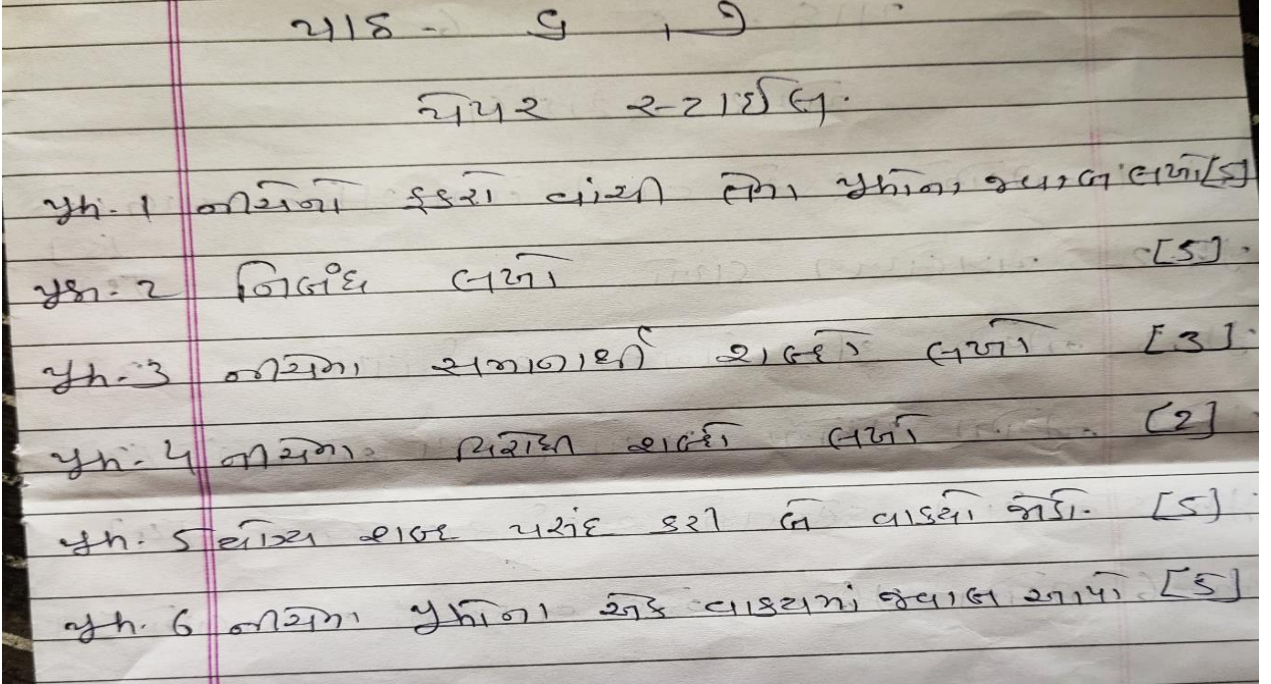 પાઠ - ૬ , ૭
પેપર સ્ટાઈલ.
પ્રશ્ન. 1 નીચેનો ફકરો વાંચી તેના પ્રશ્નોના જવાબ લખો [5]
પ્રશ્ન: 2 નિબંધ લખો [5].
પ્રશ્ન. 3 નીચેના સમાનાર્થી શબ્દો લખો [3].
પ્રશ્ન: 4 નીચેના વિરોધી શબ્દો લખો [2]
પ્રશ્ન: 5 યોગ્ય શબ્દ પસંદ કરી બે વાક્યો જોડો. [5]
પ્રશ્ન. 6 નીચેના પ્રશ્નોના એક વાક્યમાં જવાબ આપો [5]